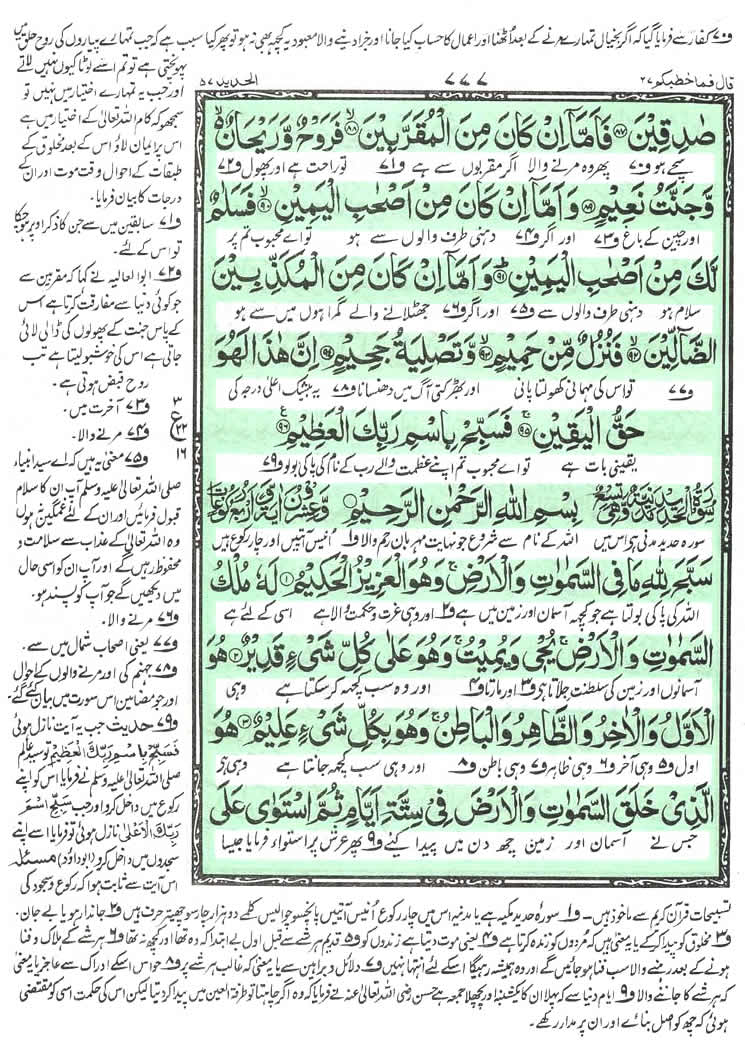 ف۷۰ کفار سے فرمایا گیا کہ اگر بخیال تمہارے مرنے کے بعد اُٹھنا اور اعمال کا حساب کیا جانا اور جزا دینے والا معبود یہ کچھ بھی نہ ہو تو پھر کیا سبب ہے کہ جب تمہارے پیاروں کی روح حلق میں
پہونچتی ہے تو تم اسے لوٹا کیوں نہیں لاتے
اور جب یہ تمہارے اختیار میں نہیں تو
سمجھو کہ کام اللہ تعالیٰ کے اختیار میں ہے
اس پر ایمان لاؤ اس کے بعد مخلوق کے
طبقات کے احوال وقت موت اور ان کے
درجات کا بیان فرمایا۔
ف۷۱ سابقین میں سے جن کا ذکر اوپر ہو چکا
تو اس کے لئے۔
ف۷۲ ابو العالیہ نے کہا کہ مقربین سے
جو کوئی دنیا سے مفارقت کرتا ہے اس
کے پاس جنت کے پھولوں کی ڈالی لائی
جاتی ہے اس کی خوشبو لیتا ہے تب
روح قبض ہوتی ہے۔
ف۷۳ آخرت میں۔
ف۷۴ مرنے والا۔
ف۷۵ معنی یہ ہیں کہ اے سید انبیاء
صلی اللہ تعالیٰ علیہ وسلم آپ ان کا سلام
قبول فرمائیں اور ان کے لئے غمگین نہ ہوں
وہ اللہ تعالیٰ کے عذاب سے سلامت و
محفوظ رہیں گے اور آپ ان کو اسی حال
میں دیکھیں گے جو آپ کو پسند ہو۔
ف۷۶ مرنے والا۔
ف۷۷ یعنی اصحاب شمال میں سے۔
ف۷۸ جہنم کی اور مرنے والوں کے احوال
اور جو مضامین اس سورت میں بیان کئے گئے
ف۷۹ حدیث جب یہ آیت نازل ہوئی
فَسَبِّحْ بِاسْمِ رَبِّكَ الْعَظِيْمِ تو سید عالم
صلی اللہ تعالیٰ علیہ وسلم نے فرمایا اس کو اپنے
رکوع میں داخل کرو اور جب سَبِّحِ اسْمَ
رَبِّكَ الْاَعْلَى نازل ہوئی تو فرمایا اسے اپنے
سجدوں میں داخل کرو (ابوداؤد) مسئلہ
اس آیت سے ثابت ہوا کہ رکوع و سجود کی
قال فما خطبكم ۲۷
۷۷۷
الحديد ۵۷
صٰدِقِيْنَ ۸۷ فَاَمَّاۤ اِنْ كَانَ مِنَ الْمُقَرَّبِيْنَ ۸۸ فَرَوْحٌ وَّرَيْحَانٌ
سچے ہو ف۷۰ پھر وہ مرنے والا اگر مقربوں سے ہے ف۷۱ تو راحت ہے اور پھول ف۷۲
وَّجَنَّتُ نَعِيْمٍ ۸۹ وَاَمَّاۤ اِنْ كَانَ مِنْ اَصْحٰبِ الْيَمِيْنِ ۹۰ فَسَلٰمٌ
اور چین کے باغ ف۷۳ اور اگر ف۷۴ دہنی طرف والوں سے ہو تو اے محبوب تم پر
لَّكَ مِنْ اَصْحٰبِ الْيَمِيْنِ ۹۱ وَاَمَّاۤ اِنْ كَانَ مِنَ الْمُكَذِّبِيْنَ
سلام ہو دہنی طرف والوں سے ف۷۵ اور اگر ف۷۶ جھٹلانے والے گمراہوں میں سے ہو
الضَّآلِّيْنَ ۹۲ فَنُزُلٌ مِّنْ حَمِيْمٍ ۹۳ وَّتَصْلِيَةُ جَحِيْمٍ ۹۴ اِنَّ هٰذَا لَهُوَ
ف۷۷ تو اس کی مہمانی کھولتا پانی اور بھڑکتی آگ میں دھنسانا ف۷۸ یہ بیشک اعلیٰ درجہ کی
حَقُّ الْيَقِيْنِ ۹۵ فَسَبِّحْ بِاسْمِ رَبِّكَ الْعَظِيْمِ ۹۶
یقینی بات ہے تو اے محبوب تم اپنے عظمت والے رب کے نام کی پاکی بولو ف۷۹
ع
۲۲
۱۶
سُوْرَةُ الْحَدِيْدِ مَدَنِيَّةٌ وَّهِيَ تِسْعٌ بِسْمِ اللّٰهِ الرَّحْمٰنِ الرَّحِيْمِ وَّعِشْرُوْنَ اٰيَةً وَّاَرْبَعُ رُكُوْعَاتٍ
سورہ حدید مدنی ہے اس میں اللہ کے نام سے شروع جو نہایت مہربان رحم والا ف۱ اُنتیس آیتیں اور چار رکوع ہیں
سَبَّحَ لِلّٰهِ مَا فِى السَّمٰوٰتِ وَالْاَرْضِ وَهُوَ الْعَزِيْزُ الْحَكِيْمُ ۱ لَهٗ مُلْكُ
اللہ کی پاکی بولتا ہے جو کچھ آسمان اور زمین میں ہے ف۲ اور وہی عزت و حکمت والا ہے اسی کے لئے ہے
السَّمٰوٰتِ وَالْاَرْضِ يُحْيٖ وَيُمِيْتُ وَهُوَ عَلٰى كُلِّ شَىْءٍ قَدِيْرٌ ۲ هُوَ
آسمانوں اور زمین کی سلطنت جِلاتا ہے ف۳ اور مارتا ف۴ اور وہ سب کچھ کر سکتا ہے وہی
الْاَوَّلُ وَالْاٰخِرُ وَالظَّاهِرُ وَالْبَاطِنُ وَهُوَ بِكُلِّ شَىْءٍ عَلِيْمٌ ۳ هُوَ
اول ف۵ وہی آخر ف۶ وہی ظاہر ف۷ وہی باطن ف۸ اور وہی سب کچھ جانتا ہے وہی ہے
الَّذِىْ خَلَقَ السَّمٰوٰتِ وَالْاَرْضَ فِىْ سِتَّةِ اَيَّامٍ ثُمَّ اسْتَوٰى عَلَى
جس نے آسمان اور زمین چھ دن میں پیدا کئے ف۹ پھر عرش پر استواء فرمایا جیسا
تسبیحات قرآن کریم سے ماخوذ ہیں۔ ف۱ سورہ حدید مکیہ ہے یا مدنیہ اس میں چار رکوع اُنتیس آیتیں پانچسو چوالیس کلمے دو ہزار چار سو چھہتر حرف ہیں ف۲ جاندار ہو یا بے جان۔
ف۳ مخلوق کو پیدا کر کے یا یہ معنی ہیں کہ مُردوں کو زندہ کرتا ہے ف۴ یعنی موت دیتا ہے زندوں کو ف۵ قدیم ہر شے سے قبل اول بے ابتدا کہ وہ تھا اور کچھ نہ تھا ف۶ ہر شے کے ہلاک و فنا
ہونے کے بعد رہنے والا سب فنا ہو جائیں گے اور وہ ہمیشہ رہیگا اسکے لئے انتہا نہیں ف۷ دلائل و براہین سے یا یہ معنی کہ غالب ہر شے پر ف۸ حواس اسکے ادراک سے عاجز یا یہ معنی
کہ ہر شے کا جاننے والا ف۹ ایام دنیا سے کہ پہلا ان کا یکشنبہ اور پچھلا جمعہ ہے حسن رضی اللہ تعالیٰ عنہ نے فرمایا کہ وہ اگر چاہتا تو طرفۃ العین میں پیدا کر دیتا لیکن اس کی حکمت اسی کو مقتضی
ہوئی کہ چھ کو اصل بنائے اور ان پر مدار رکھے۔